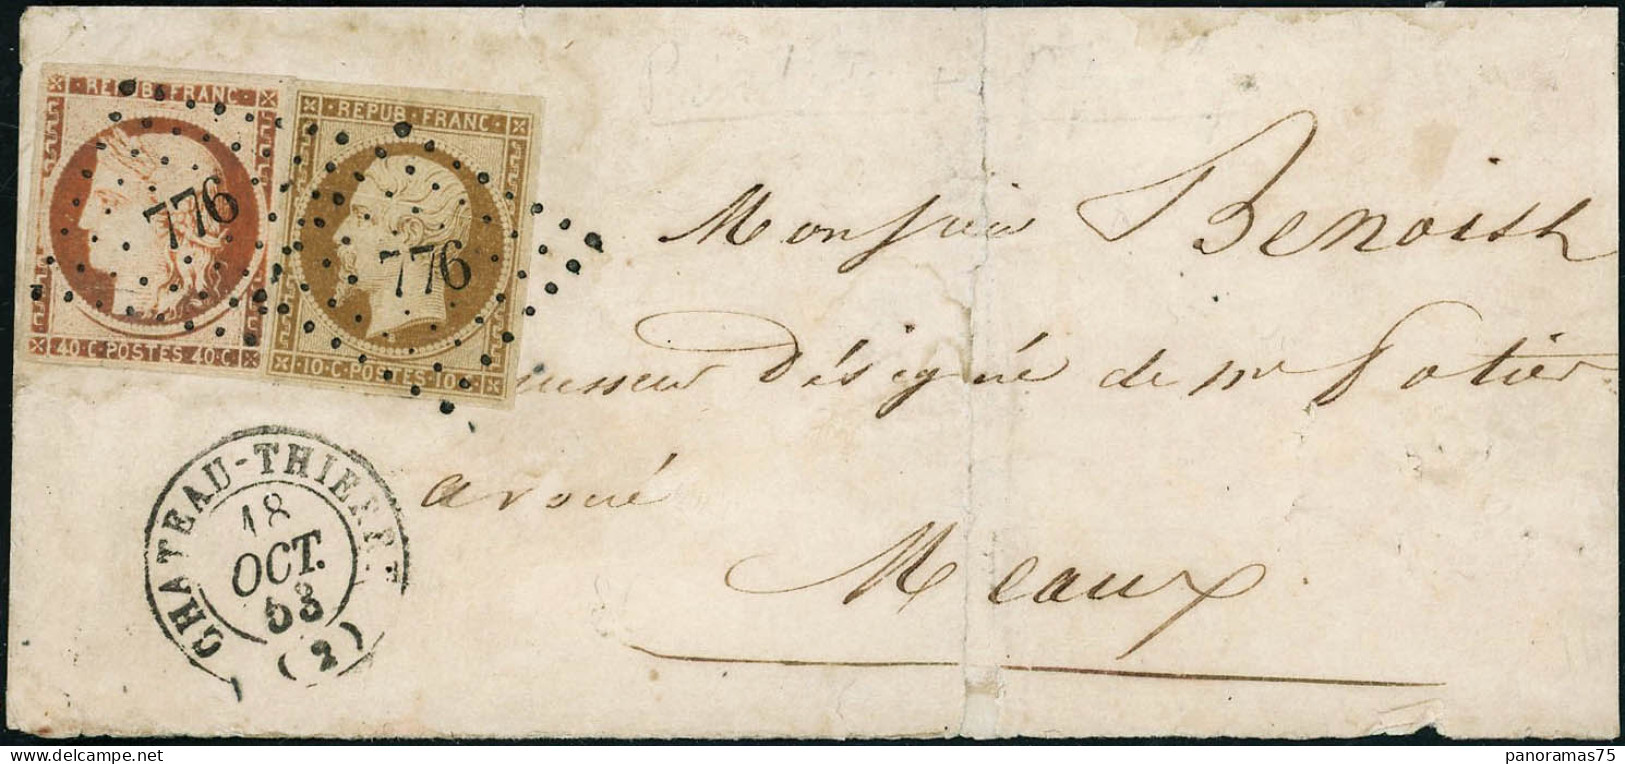 REPUB·FRANC·
776
40·C·POSTES·40·C
·REPUB·FRANC·
776
·10·C·POSTES·10·C·
Monsieur Benoist
Désigné de mr Potier
avoué
Meaux
CHATEAU-THIERRY
18
OCT.
53
(2)
panoramas75